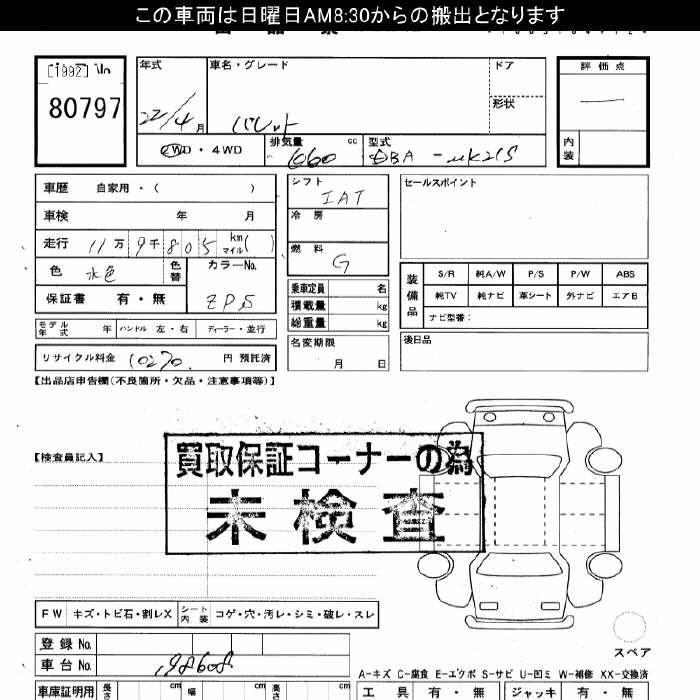 この車両は日曜日AM8:30からの搬出となります
[1992] No
80797
年式
22/4月
車名・グレード
パレット
ドア
形状
評価点
内装
2WD・4WD
排気量
660 cc
型式
DBA-MK21S
車歴 自家用・( )
車検 年 月
走行 11万9千805 km マイル( )
色 水色 色替
カラーNo.
ZPS
保証書 有・無
モデル年式 年 ハンドル 左・右 ディーラー・並行
リサイクル料金 10270 円 預託済
シフト
IAT
冷房
燃料
G
乗車定員 名
積載量 kg
総重量 kg
名変期限
月 日
セールスポイント
装備品
S/R 純A/W P/S P/W ABS
純TV 純ナビ 革シート 外ナビ エアB
ナビ型番:
後日品
【出品店申告欄(不良箇所・欠品・注意事項等)】
【検査員記入】
買取保証コーナーの為
未検査
FW キズ・トビ石・割レX シート内装 コゲ・穴・汚レ・シミ・破レ・スレ
スペア
登録No.
車台No. 198608
A-キズ C-腐食 E-エクボ S-サビ U-凹ミ W-補修 XX-交換済
車庫証明用 長さ cm 幅 cm 高さ cm
工具 有・無 ジャッキ 有・無